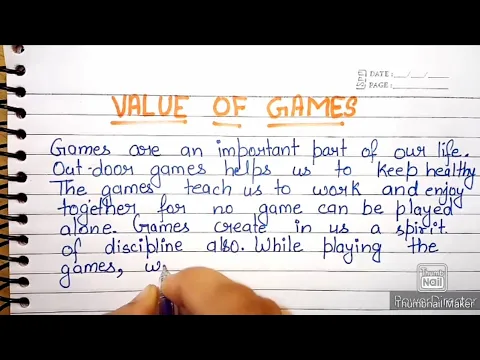 DATE: __/__/__
PAGE:
VALUE OF GAMES
Games are an important part of our life.
Out-door games helps us to keep healthy
The games teach us to work and enjoy
together for no game can be played
alone. Games create in us a spirit
of discipline also. While playing the
games, w
Thumb
Nail
PowerDirector
Thumbnail Maker